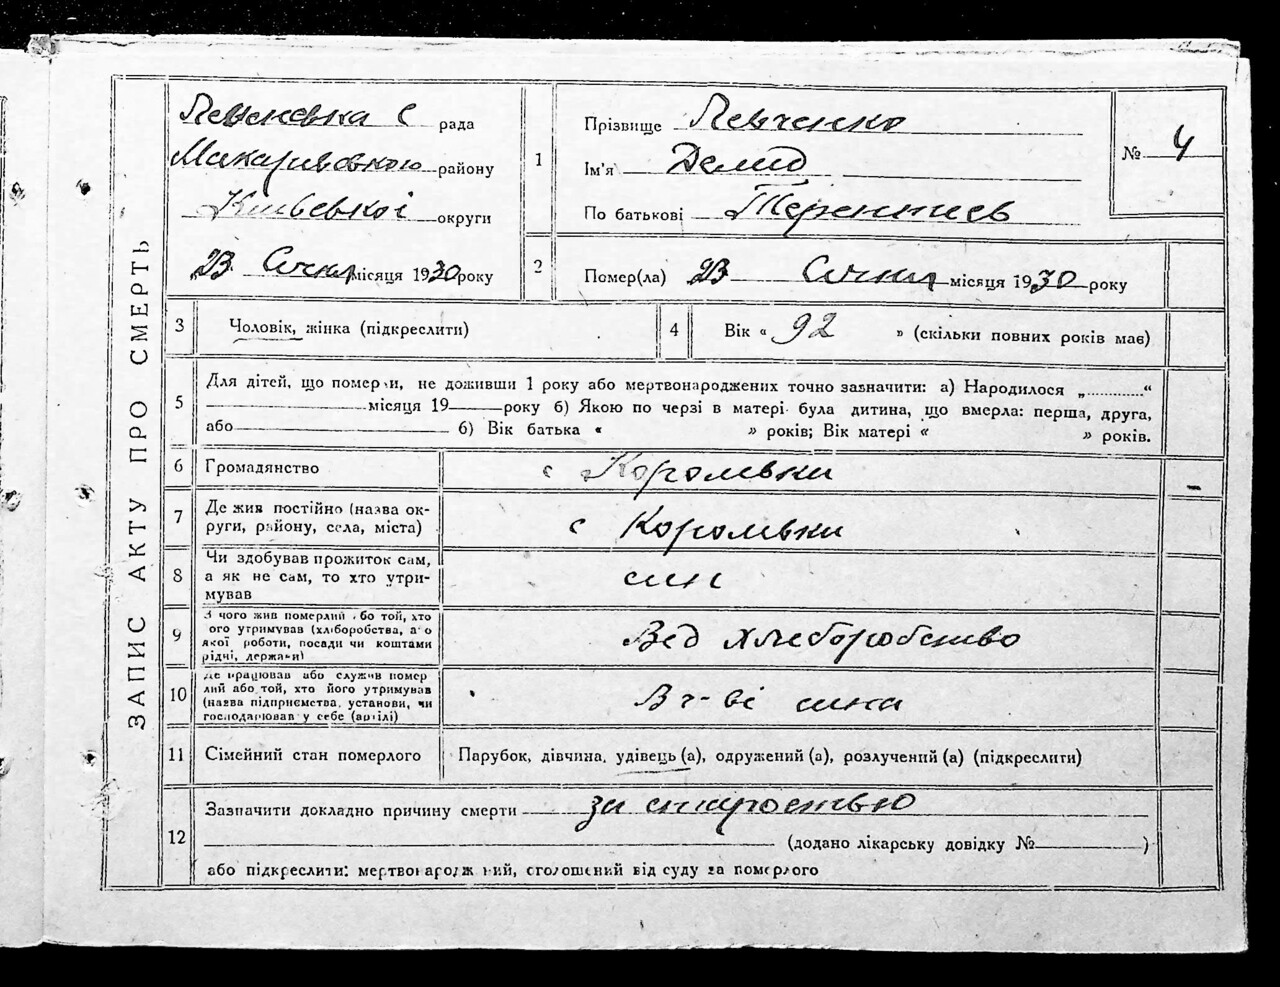 ЗАПИС АКТУ ПРО СМЕРТЬ
с рада
Макарівською району
Київської округи
23 Січня місяця 1930 року
1
Прізвище Левченко
Ім'я Демид
По батькові Терентиев
№ 4
2
Помер(ла) 23 Січня місяця 1930 року
3 Чоловік, жінка (підкреслити)
4 Вік « 92 » (скільки повних років має)
5
Для дітей, що померли, не доживши 1 року або мертвонароджених точно зазначити: а) Народилося „............“
місяця 19 року б) Якою по черзі в матері була дитина, що вмерла: перша, друга,
або б) Вік батька « » років; Вік матері « » років.
6 Громадянство с Королівки
7 Де жив постійно (назва ок-
руги, району, села, міста)
с Королівки
8
Чи здобував прожиток сам,
а як не сам, то хто утри-
мував
син
9
З чого жив померлий або той, хто
його утримував (хліборобства, або
якої роботи, посади чи коштами
рідні, держави)
Вед хлеборобство
10
Де працював або служив помер
лий або той, хто його утримував
(назва підприємства, установи, чи
господарював у себе (артілі)
В г-ві сина
11 Сімейний стан померлого Парубок, дівчина, удівець (а), одружений (а), розлучений (а) (підкреслити)
12
Зазначити докладно причину смерти за старостью
(додано лікарську довідку № )
або підкреслити: мертвонароджений, оголошений від суду за померлого